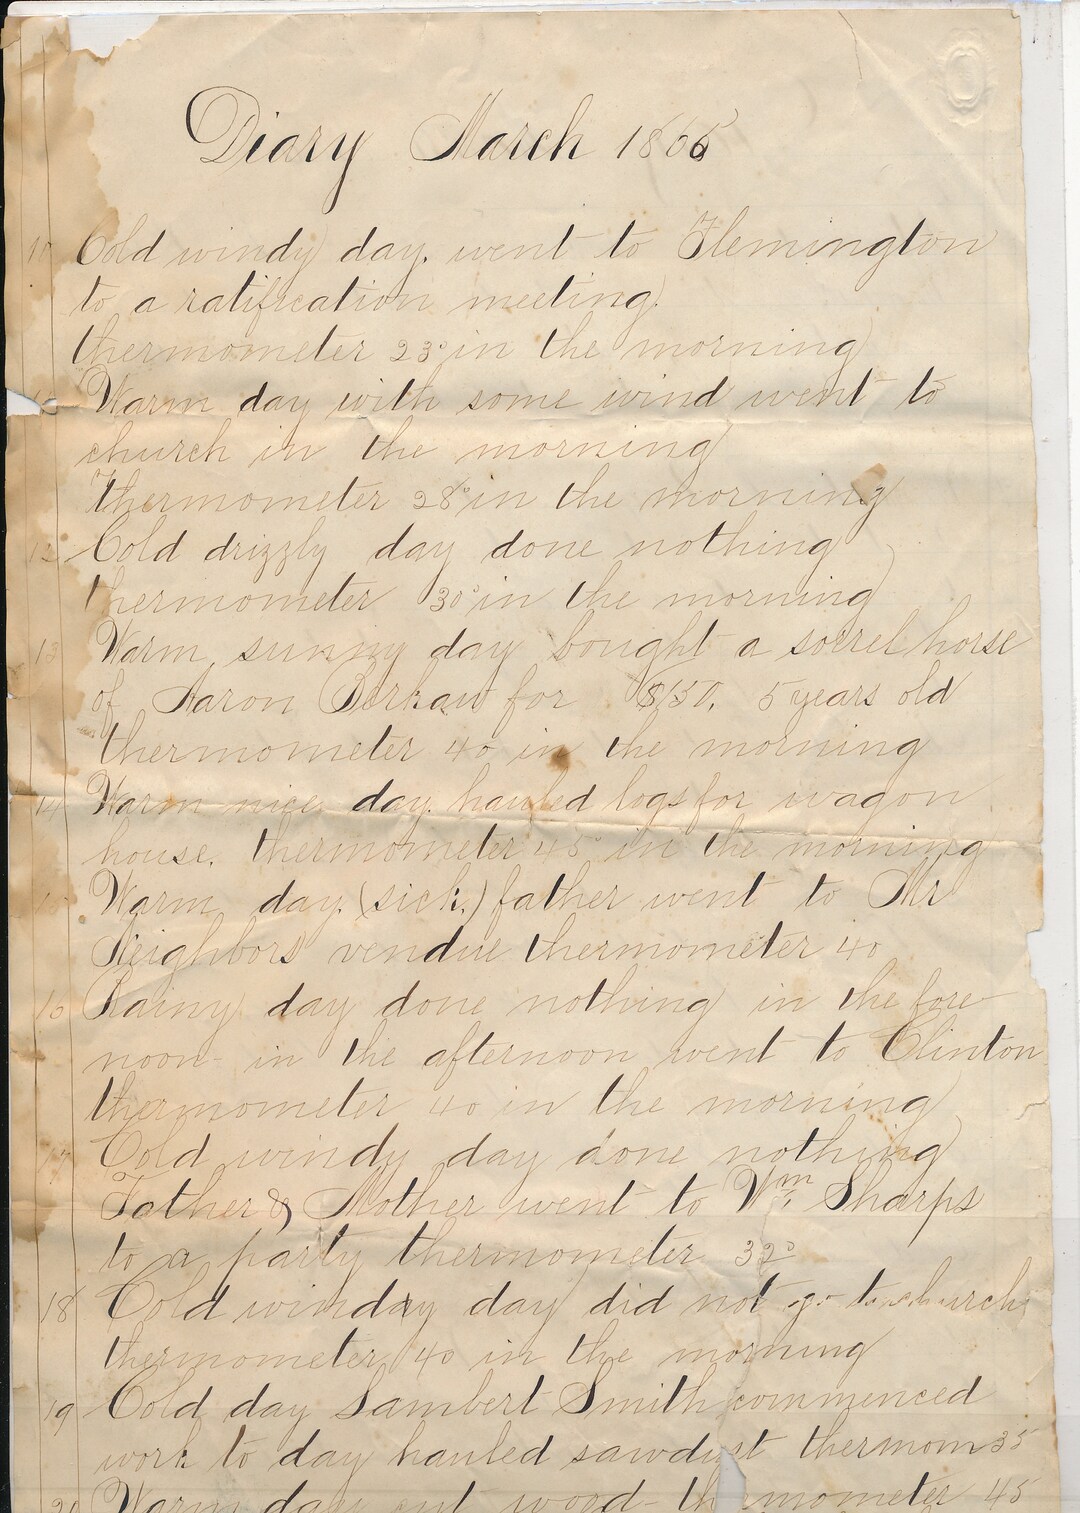 Diary March 1866
10 Cold windy day. went to Flemington
to a ratification meeting.
thermometer 23° in the morning
Warm day with some wind went to
church in the morning
Thermometer 28° in the morning
12 Cold drizzly day done nothing
thermometer 30° in the morning
13 Warm sunny day bought a sorrel horse
of Aaron Berkaw for $150. 5 years old
thermometer 40 in the morning
14 Warm nice day. hauled logs for wagon
house. thermometer 45° in the morning
Warm day. (sick.) father went to Mr
Neighbors vendue thermometer 40
16 Rainy day done nothing in the fore
noon - in the afternoon went to Clinton
thermometer 40 in the morning
17 Cold windy day done nothing
Father & Mother went to Wm. Sharps
to a party thermometer 32°
18 Cold winday day did not go to church
thermometer 40 in the morning
19 Cold day Lambert Smith commenced
work to day hauled sawdust thermom 35
20 Warm day cut wood - thermometer 45